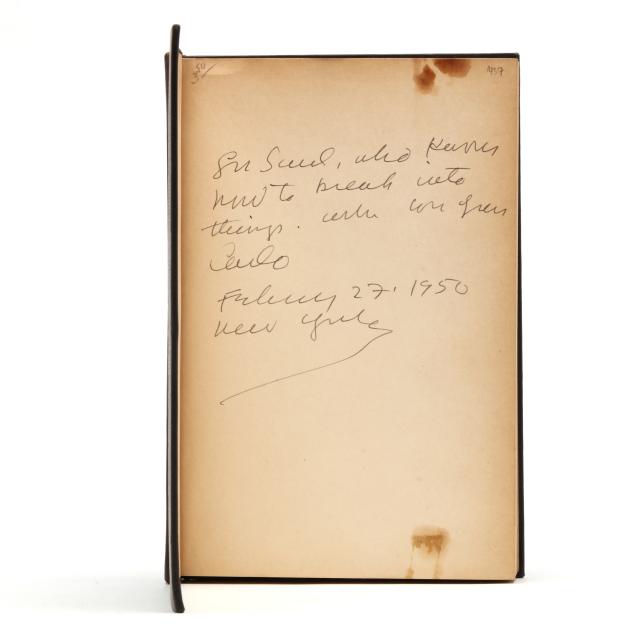 3 50/
1937
For Saul, who knows
how to break into
things. with
Carlo
February 27. 1950
New York